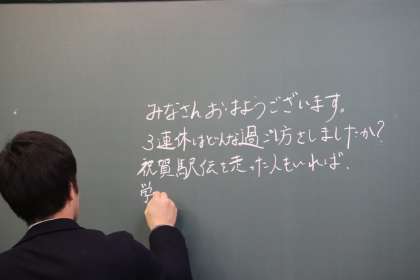 みなさんおはようございます。
3連休はどんな過ごし方をしましたか?
祝賀駅伝を走った人もいれば、
学